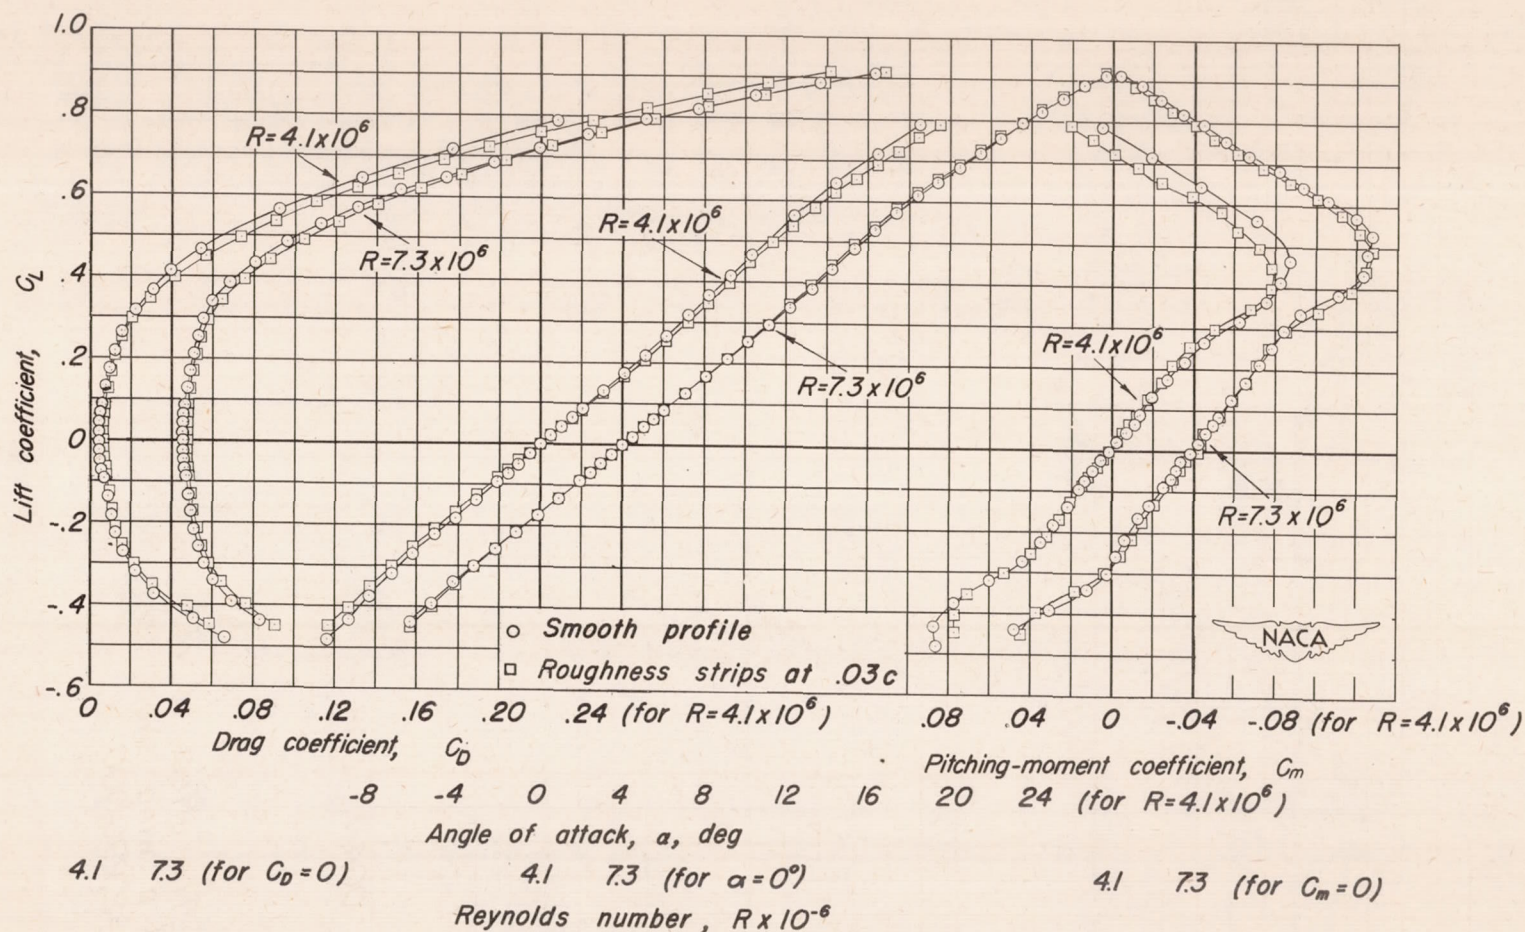 1.0
.8
.6
.4
.2
0
-.2
-.4
-.6
Lift coefficient, C_L
R=4.1x10^6
R=7.3x10^6
R=4.1x10^6
R=7.3x10^6
R=4.1x10^6
R=7.3x10^6
Smooth profile
Roughness strips at .03c
NACA
0 .04 .08 .12 .16 .20 .24 (for R=4.1x10^6)
.08 .04 0 -.04 -.08 (for R=4.1x10^6)
Drag coefficient, C_D
Pitching-moment coefficient, C_m
-8 -4 0 4 8 12 16 20 24 (for R=4.1x10^6)
Angle of attack, α, deg
4.1 7.3 (for C_D=0) 4.1 7.3 (for α=0°) 4.1 7.3 (for C_m=0)
Reynolds number, R x 10^-6